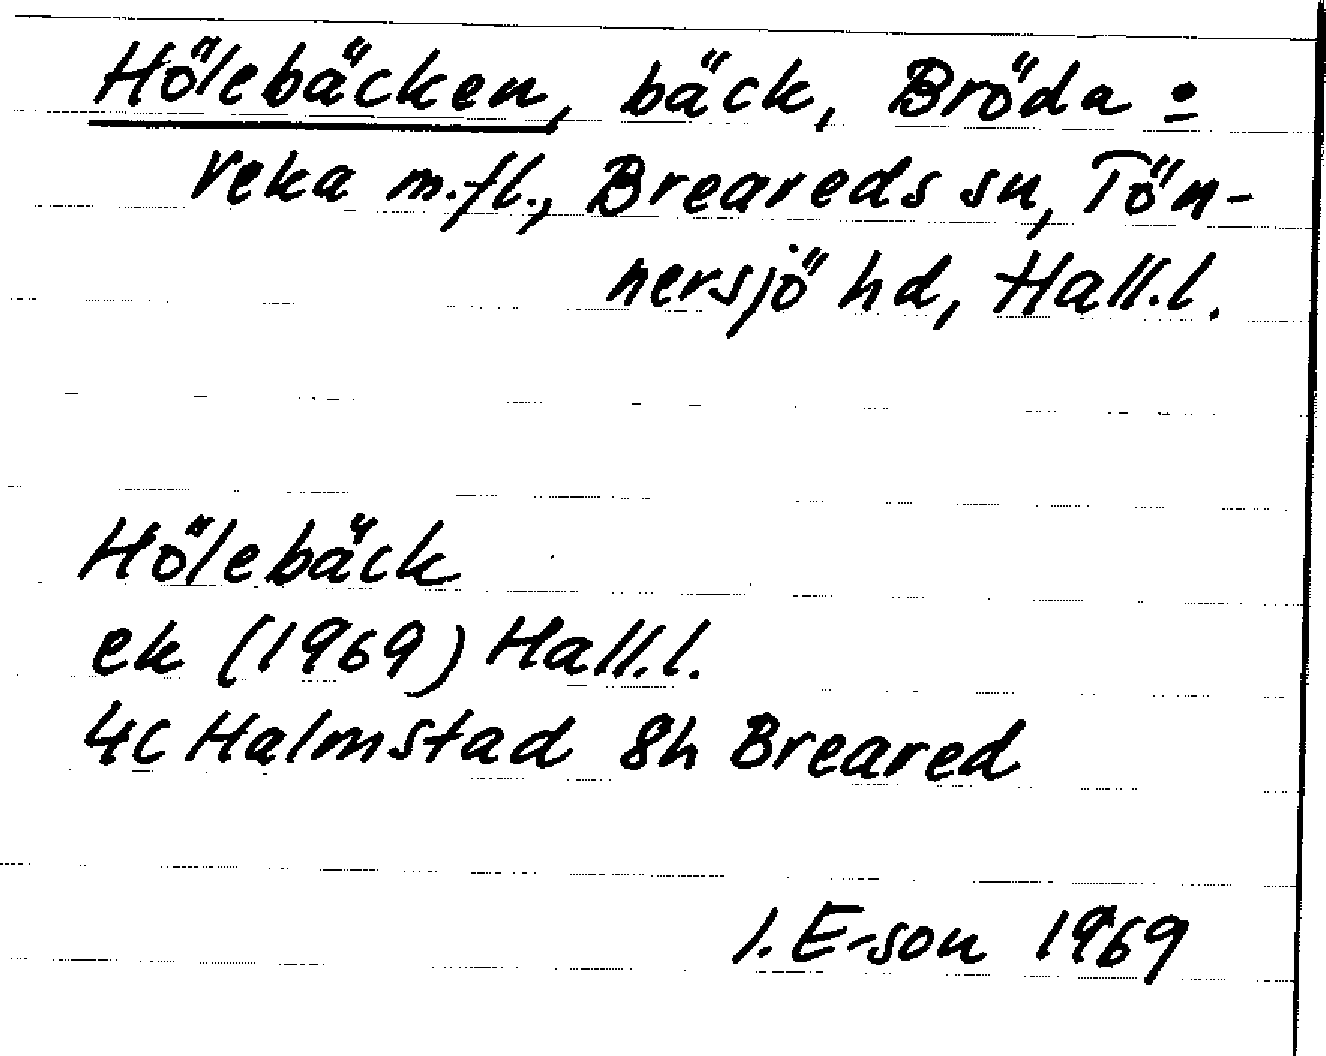 Hölebäcken, bäck, Bröda=
reka m.fl., Breareds sn, Tön-
nersjö hd, Hall.l.
Hölebäck
ek (1969) Hall.l.
4C Halmstad 8h Breared
I. E-son 1969